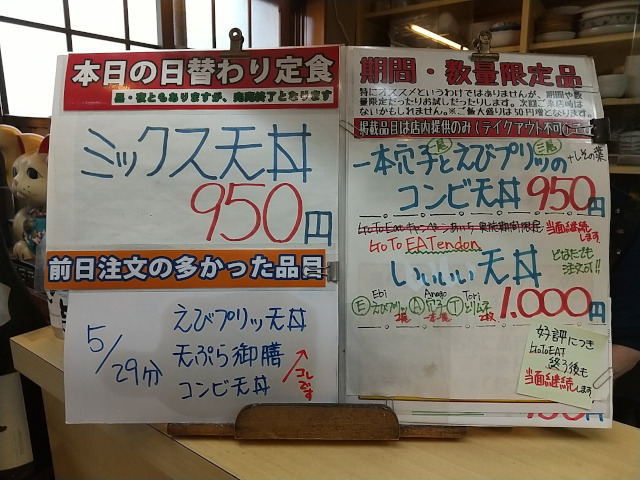 本日の日替わり定食
昼・夜ともありますが、完売終了となります
ミックス天丼
950円
前日注文の多かった品目
5/29分
えびプリッ天丼
天ぷら御膳
コンビ天丼
↑コレです
期間・数量限定品
特にオススメというわけではありませんが、期間や数
量限定だったりお試しだったりします。次回ご来店時は
ないかもしれません。※ご飯大盛りは50円増となります。
掲載品目は店内提供のみ(テイクアウト不可)
一本穴子とえびプリッの
二尾
+しその葉
コンビ天丼 950円
GoToEatキャンペーンあわち 実施期間限定
当面継続します。
GoTo EATendon
いいいい天丼
どなたでも
注文可!!
Ebi Anago Tori
Ⓔえびプリッ Ⓐ穴子 Ⓣとりムネ
1.000円
好評につき
GoToEAT
終了後も
当面継続します。